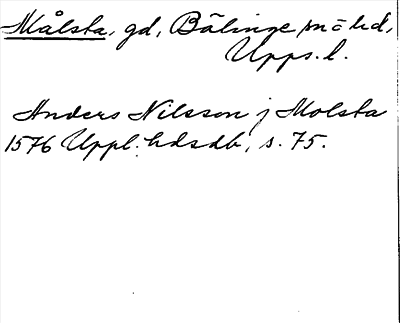 Målsta, gd, Bälinge sn o hd,
Upps. l.
Anders Nilsson j Molsta
1576 Uppl. hdsdb, s. 75.